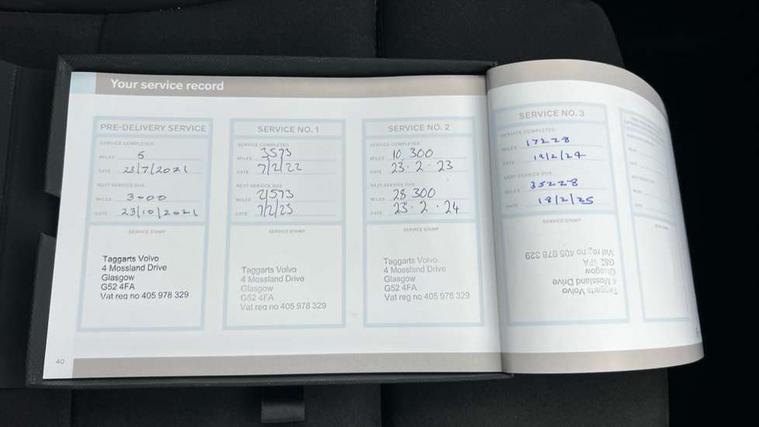 Your service record
PRE-DELIVERY SERVICE
SERVICE COMPLETED:
MILES 5
DATE 23/7/2021
NEXT SERVICE DUE:
MILES 3000
DATE 23/10/2021
SERVICE STAMP
Taggarts Volvo
4 Mossland Drive
Glasgow
G52 4FA
Vat reg no 405 978 329
SERVICE NO. 1
SERVICE COMPLETED:
MILES 3573
DATE 7/2/22
NEXT SERVICE DUE:
MILES 21573
DATE 7/2/23
SERVICE STAMP
Taggarts Volvo
4 Mossland Drive
Glasgow
G52 4FA
Vat reg no 405 978 329
SERVICE NO. 2
SERVICE COMPLETED:
MILES 10 300
DATE 23·2·23
NEXT SERVICE DUE:
MILES 28 300
DATE 23·2·24
SERVICE STAMP
Taggarts Volvo
4 Mossland Drive
Glasgow
G52 4FA
Vat reg no 405 978 329
SERVICE NO. 3
SERVICE COMPLETED:
MILES 17228
DATE 19/2/24
NEXT SERVICE DUE:
MILES 35228
DATE 18/2/25
SERVICE STAMP
Taggarts Volvo
4 Mossland Drive
Glasgow
G52 4FA
Vat reg no 405 978 329
40